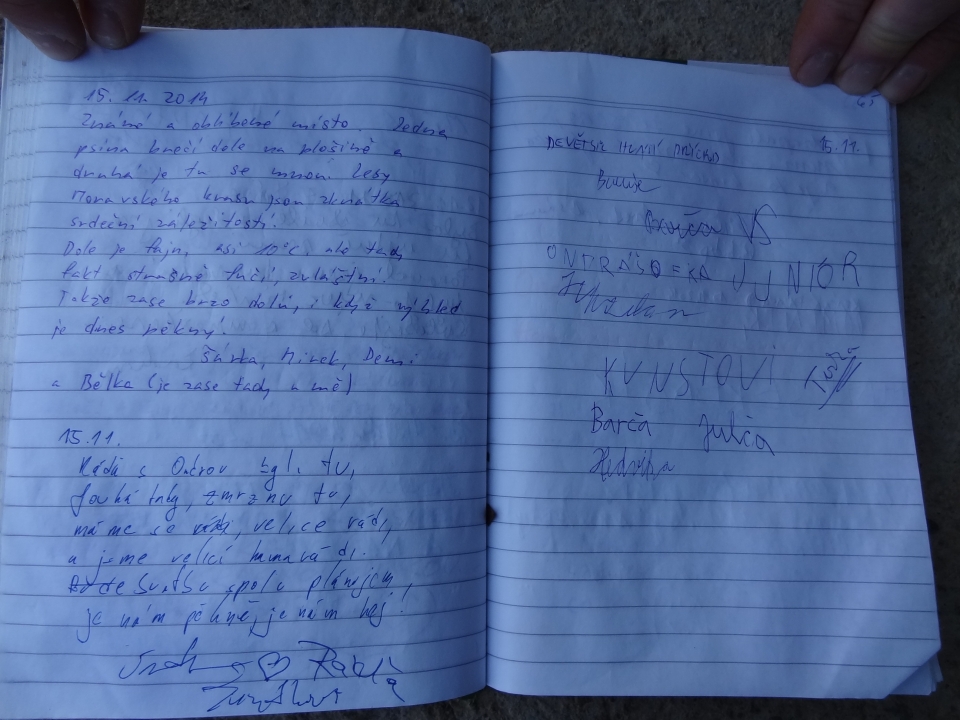 15. 11. 2014
Známé a oblíbené místo. Jedna
psina kňečí dole na plošině a
druhá je tu se mnou. Lesy
Moravského krasu jsou zkrátka
srdeční záležitostí.
Dole je fajn, asi 10°C, ale tady
fakt strašně fučí, zvláštní.
Takže zase brzo dolů, i když výhled
je dnes pěkný.
Šárka, Mirek, Demi
a Bělka (je zase tady u mě)
15.11.
Ráďa s tu,
fouká tady, zmrznu tu,
máme se rádi, velice rádi,
a jsme velicí
svatbu spolu plánujem,
je nám pěkně, je nám hej!
45
DEVĚTSIL 15.11.
ONDRÁŠO = KA JUNIOR
KUNSTOVI
Barča Julča
Hedvika